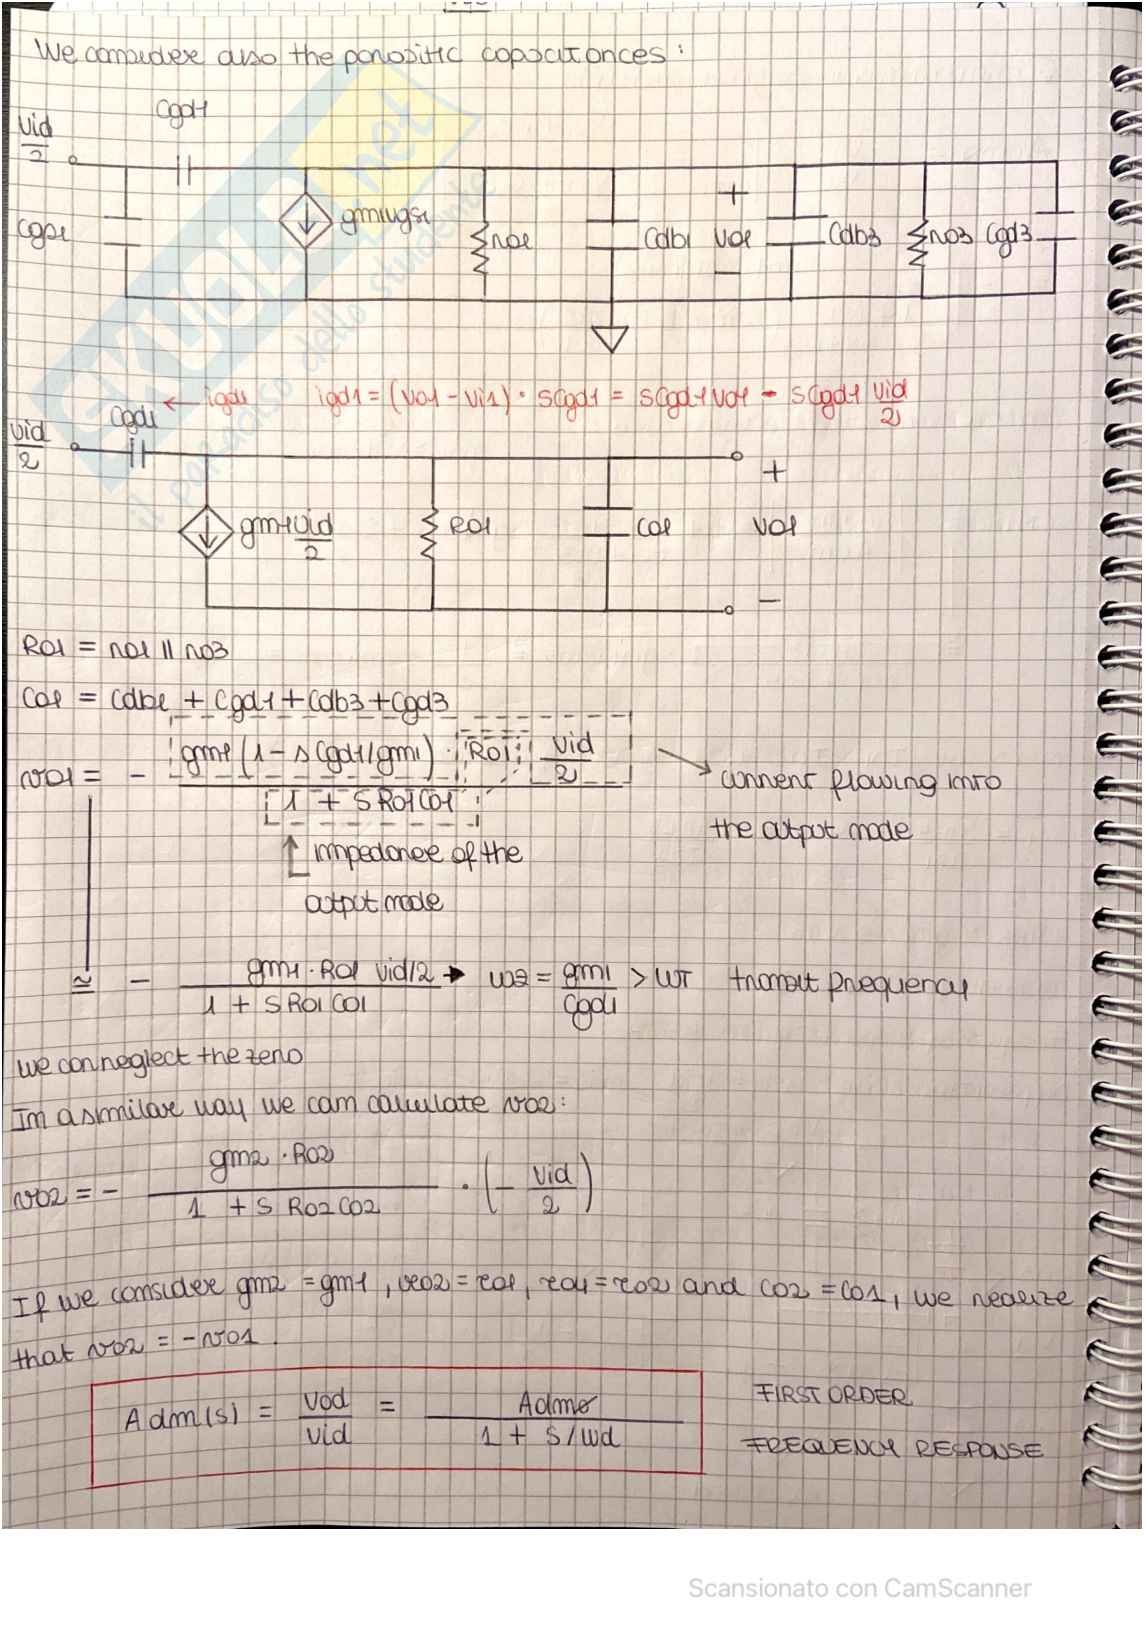 We consider also the parasitic capacitances:
Cgd1
vid/2
Cgs1
gm1vgs1
ro1
Cdb1
+
vo1
−
Cdb3
ro3
Cgd3
Cgd1 ← igd1
igd1 = (vo1 - vi1) · sCgd1 = sCgd1vo1 - sCgd1 vid/2
vid/2
gm1 vid/2
Ro1
Co1
+
vo1
−
Ro1 = ro1 || ro3
Co1 = Cdb1 + Cgd1 + Cdb3 + Cgd3
vo1 = - gm1 (1 - sCgd1/gm1) · Ro1 · vid/2 / 1 + sRo1Co1
current flowing into
the output node
impedance of the
output node
≅ - gm1 · Ro1 vid/2 / 1 + sRo1Co1 → ωz = gm1/Cgd1 > ωT transit frequency
we can neglect the zero
In a similar way we can calculate vo2:
vo2 = - gm2 · Ro2 / 1 + s Ro2Co2 · (- vid/2)
If we consider gm2 = gm1, ro2 = ro1, ro4 = ro2 and Co2 = Co1, we realize
that vo2 = -vo1.
Adm(s) = vod/vid = Adm0 / 1 + s/ωd
FIRST ORDER
FREQUENCY RESPONSE
SKUOLA.net
il paradiso dello studente
Scansionato con CamScanner